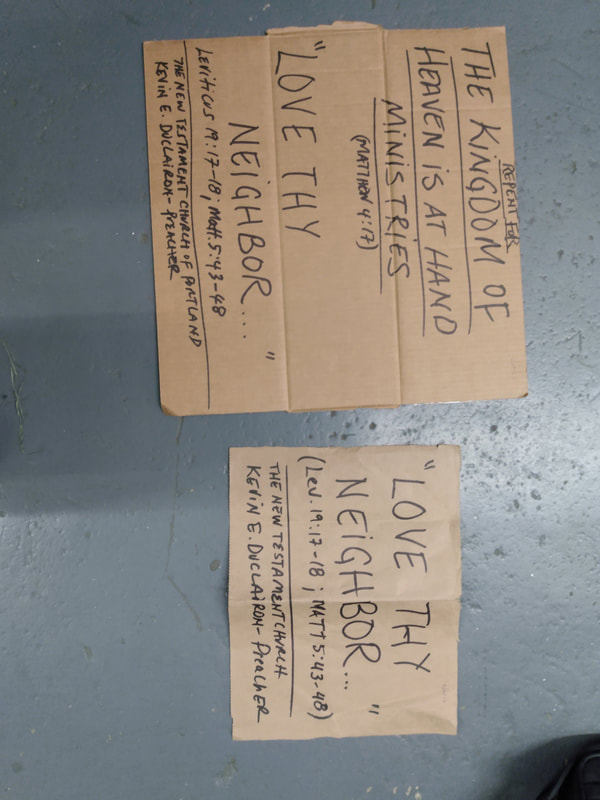 REPENT FOR
THE KINGDOM OF
HEAVEN IS AT HAND
MINISTRIES
(MATTHEW 4:17)
"LOVE THY
NEIGHBOR... "
Leviticus 19:17-18; Matt. 5:43-48
THE NEW TESTAMENT CHURCH OF PORTLAND
KEVIN E. DUCLAIRON- PREACHER
"LOVE THY
NEIGHBOR... "
(Lev. 19:17-18; MATT 5:43-48)
THE NEW TESTAMENT CHURCH
KEVIN E. DUCLAIRON- PreACHER